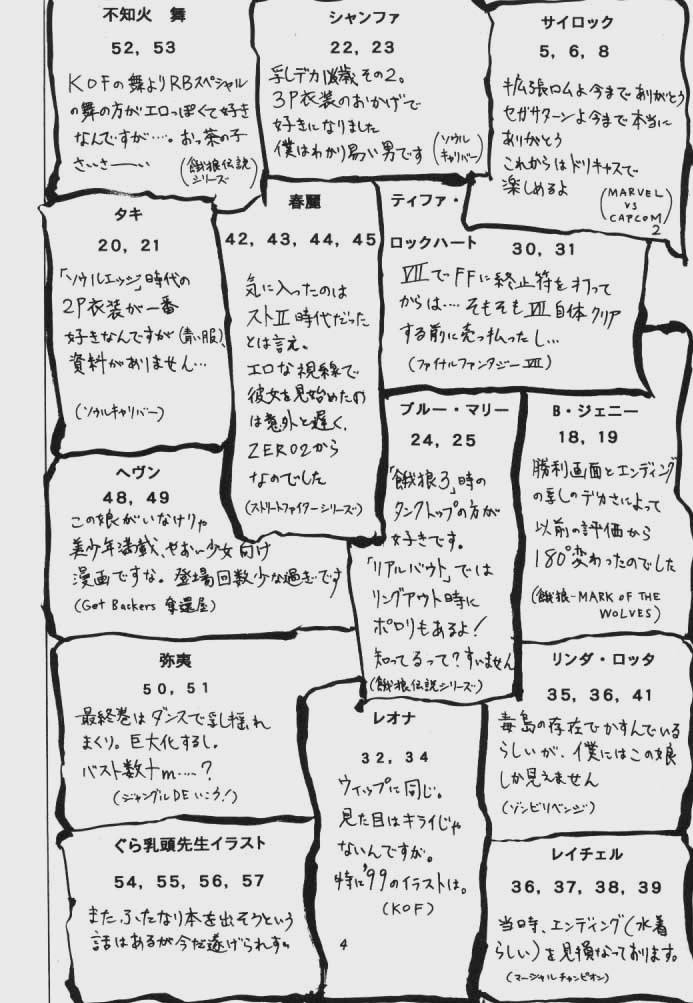 不知火 舞
52, 53
KOFの舞よりRBスペシャル
の舞の方がエロっぽくて好き
なんですが‥‥。おっ茶の子
さいさ——い
(餓狼伝説
シリーズ)
シャンファ
22, 23
乳デカ
その2。
3P衣装のおかげで
好きになりました
僕はわかり易い男です
(ソウル
キャリバー)
サイロック
5, 6, 8
拡張ロムよ今までありがとう
セガサターンよ今まで本当に
ありがとう
これからはドリキャスで
楽しめるよ
(MARVEL
VS
CAPCOM
2)
タキ
20, 21
「ソウルエッジ」時代の
2P衣装が一番
好きなんですが(青い服)、
資料がありません…
(ソウルキャリバー)
春麗
42, 43, 44, 45
気に入ったのは
ストⅡ時代だった
とは言え。
エロな視線で
彼女を見始めたの
は意外と遅く、
ZERO2から
なのでした
(ストリートファイターシリーズ)
ティファ・
ロックハート
30, 31
ⅦでFFに終止符を打って
からは‥‥そもそもⅦ自体クリア
する前に売っ払ったし…
(ファイナルファンタジーⅦ)
ヘヴン
48, 49
この娘がいなけりゃ
美少年満載、せおい少女向け
漫画ですな。登場回数少な過ぎです
(Get Backers 奪還屋)
ブルー・マリー
24, 25
「餓狼3」時の
タンクトップの方が
好きです。
「リアルバウト」では
リングアウト時に
ポロリもあるよ!
知ってるって?すいません
(餓狼伝説シリーズ)
B・ジェニー
18, 19
勝利画面とエンディング
の乳のデカさによって
以前の評価から
180°変わったのでした
(餓狼-MARK OF THE
WOLVES)
弥夷
50, 51
最終巻はダンスで乳揺れ
まくり。巨大化するし。
バスト数十m‥‥?
(ジャングルDEいこう!)
レオナ
32, 34
ウィップに同じ。
見た目はキライじゃ
ないんですが。
特に'99のイラストは。
(KOF)
リンダ・ロッタ
35, 36, 41
毒島の存在でかすんでいる
らしいが、僕にはこの娘
しか見えません
(ゾンビリベンジ)
ぐら乳頭先生イラスト
54, 55, 56, 57
また、ふたなり本を出そうという
話はあるが今だ遂げられず。
レイチェル
36, 37, 38, 39
当時、エンディング(水着
らしい)を見損なっております。
(マーシャルチャンピオン)
4